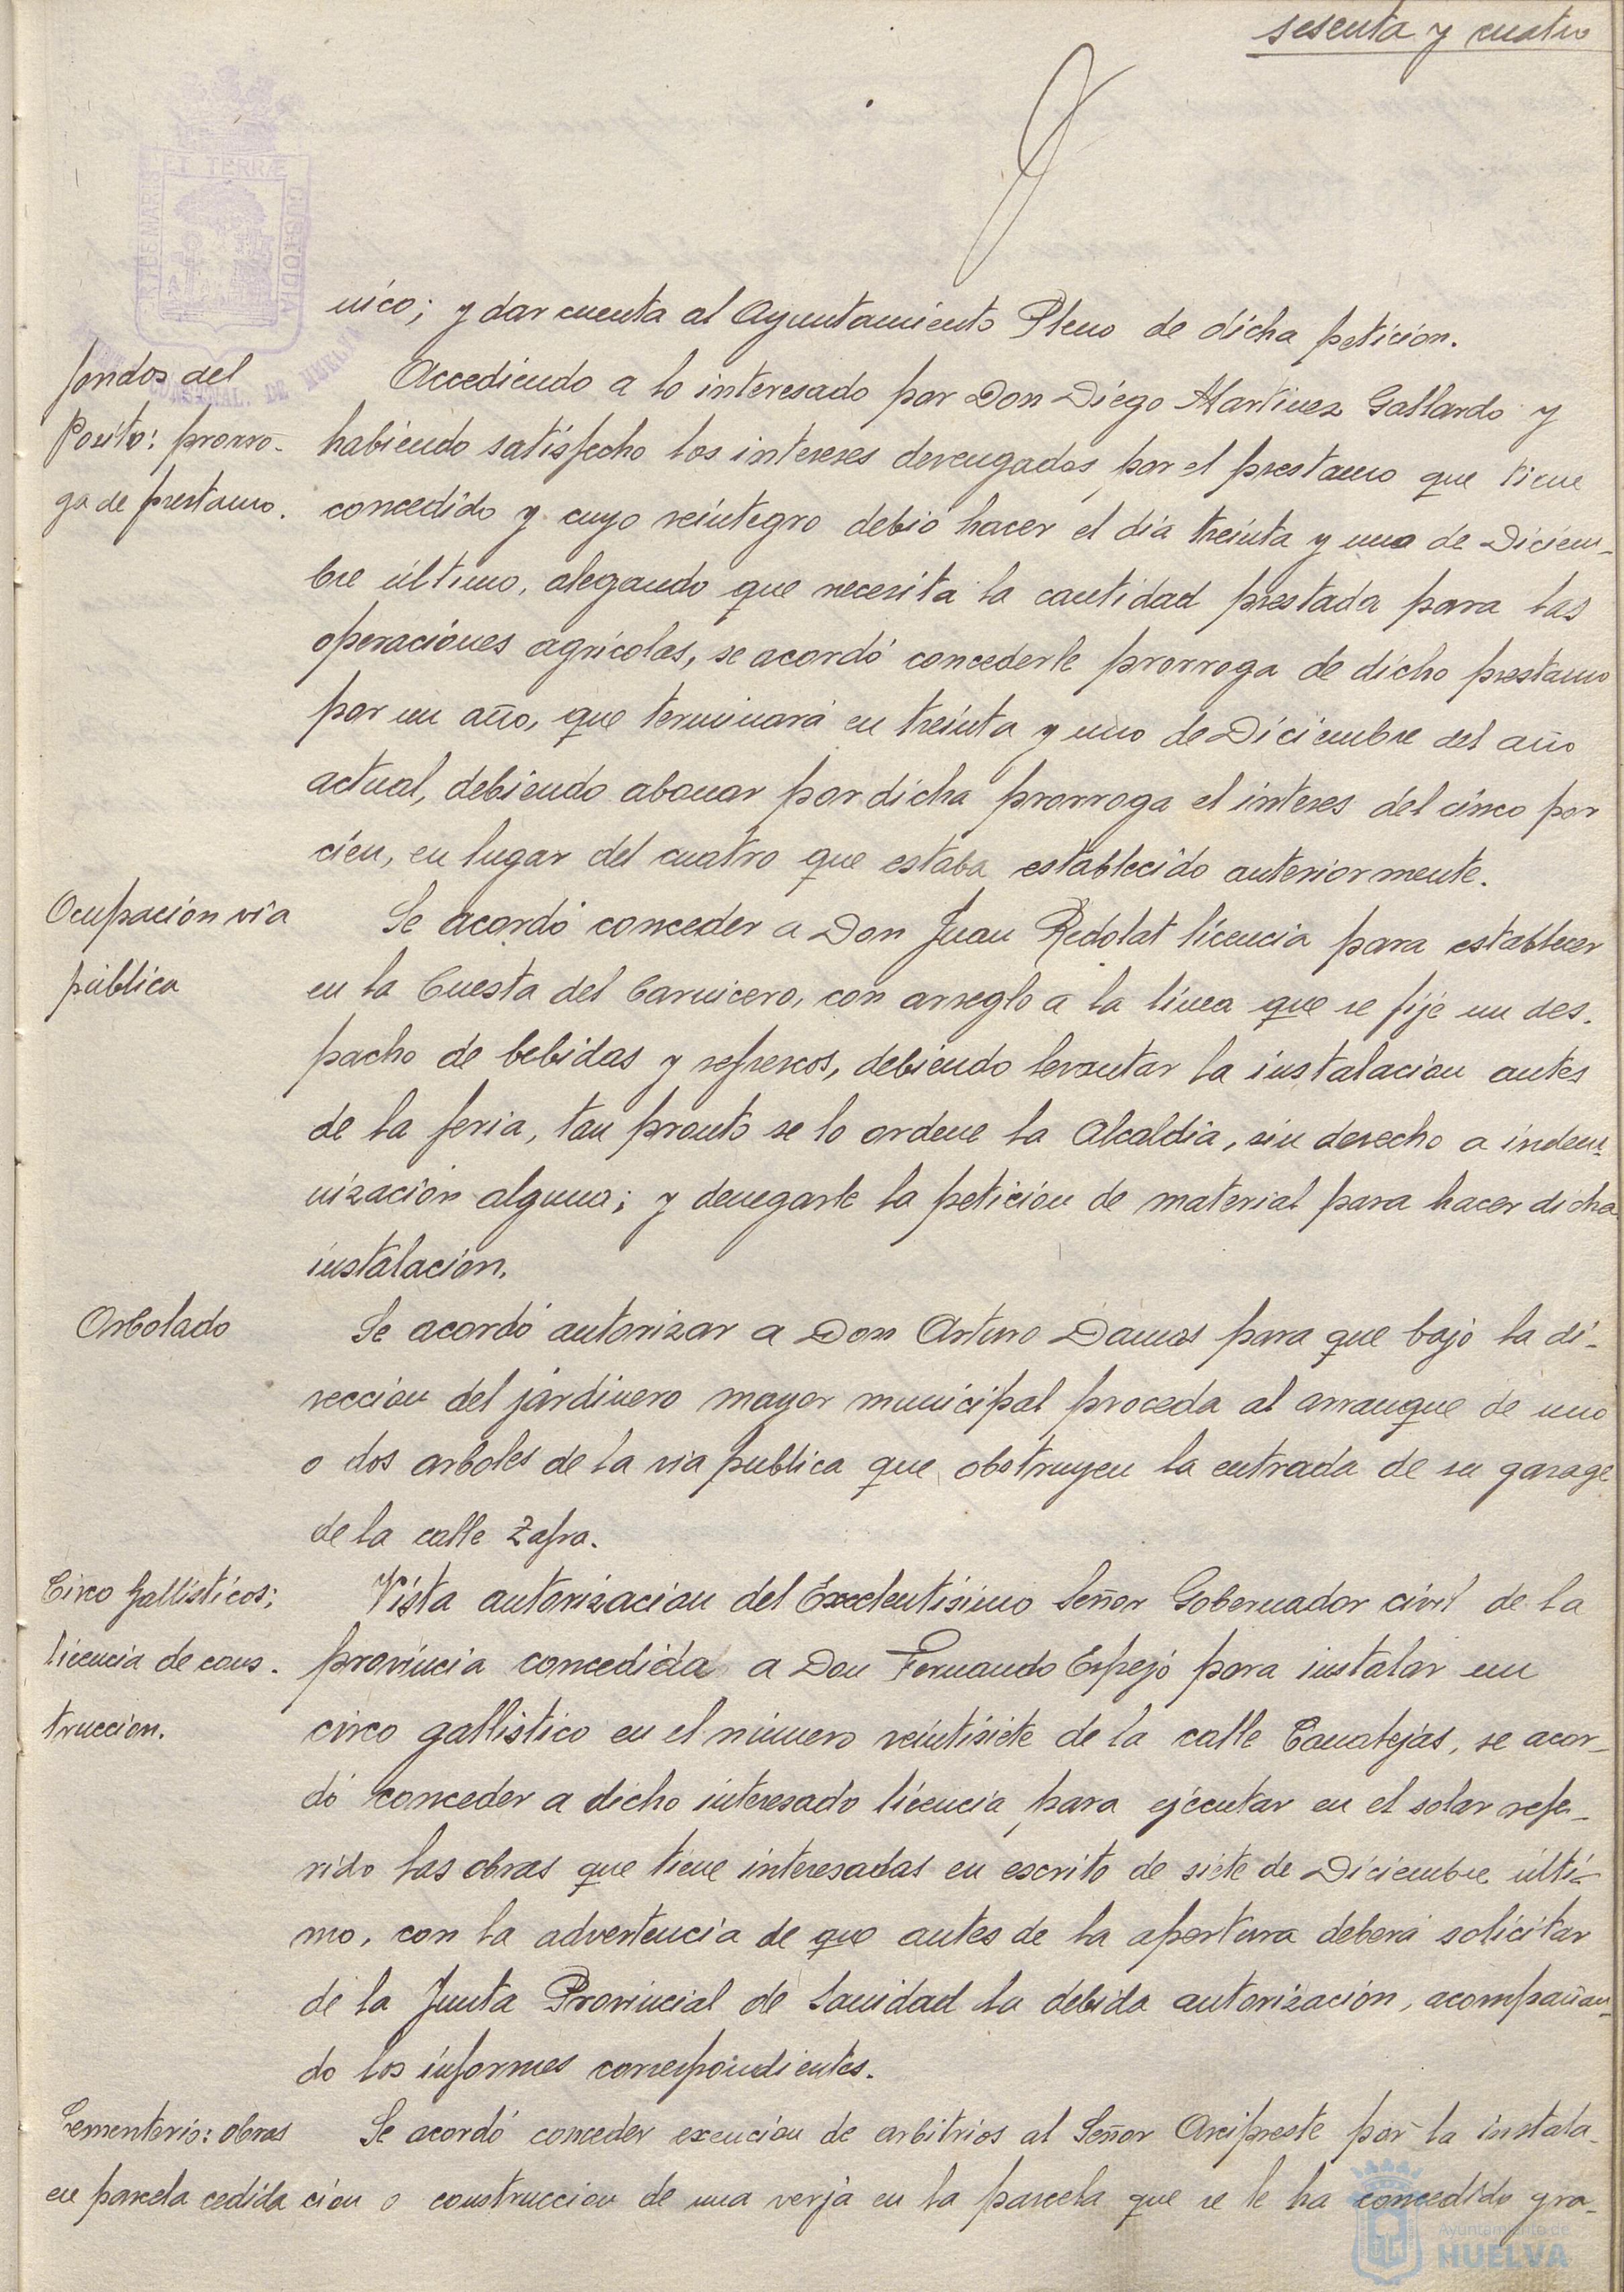 sesenta y cuatro
nico; y dar cuenta al Ayuntamiento Pleno de dicha petición.
fondos del
Posito: prorro-
ga de prestamo.
Accediendo a lo interesado por Don Diego Martinez Gallardo y
habiendo satisfecho los intereses devengados por el prestamo que tiene
concedido y cuyo reintegro debió hacer el día treinta y uno de Diciem-
bre último, alegando que necesita la cantidad prestada para las
operaciones agricolas, se acordó concederle prorroga de dicho prestamo
por un año, que terminará en treinta y uno de Diciembre del año
actual, debiendo abonar por dicha prorroga el interes del cinco por
cien, en lugar del cuatro que estaba establecido anteriormente.
Ocupación via
pública
Se acordó conceder a Don Juan Redolat licencia para establecer
en la Cuesta del Carnicero, con arreglo a la línea que se fije un des-
pacho de bebidas y refrescos, debiendo levantar la instalacion antes
de la feria, tan pronto se lo ordene la Alcaldia, sin derecho a indem-
nización alguna; y denegarle la peticion de material para hacer dicha
instalacion.
Arbolado
Se acordó autorizar a Don Arturo Damas para que bajo la di-
reccion del jardinero mayor municipal proceda al arranque de uno
o dos arboles de la via publica que obstruyen la entrada de su garage
de la calle Zafra.
Circo Gallisticos;
licencia de cons-
truccion.
Vista autorizacion del Excelentisimo Señor Gobernador civil de la
provincia concedida a Don Fernando Espejo para instalar un
circo gallistico en el número veintisiete de la calle Canalejas, se acor-
dó conceder a dicho interesado licencia para ejecutar en el solar refe-
rido las obras que tiene interesadas en escrito de siete de Diciembre últi-
mo, con la advertencia de que antes de la apertura deberá solicitar
de la Junta Provincial de Sanidad la debida autorización, acompañan-
do los informes correspondientes.
Cementerio: obras
en parcela cedida
Se acordó conceder exencion de arbitrios al Señor Arcipreste por la instala-
cion o construccion de una verja en la parcela que se le ha concedido gra-
Ayuntamiento de
HUELVA